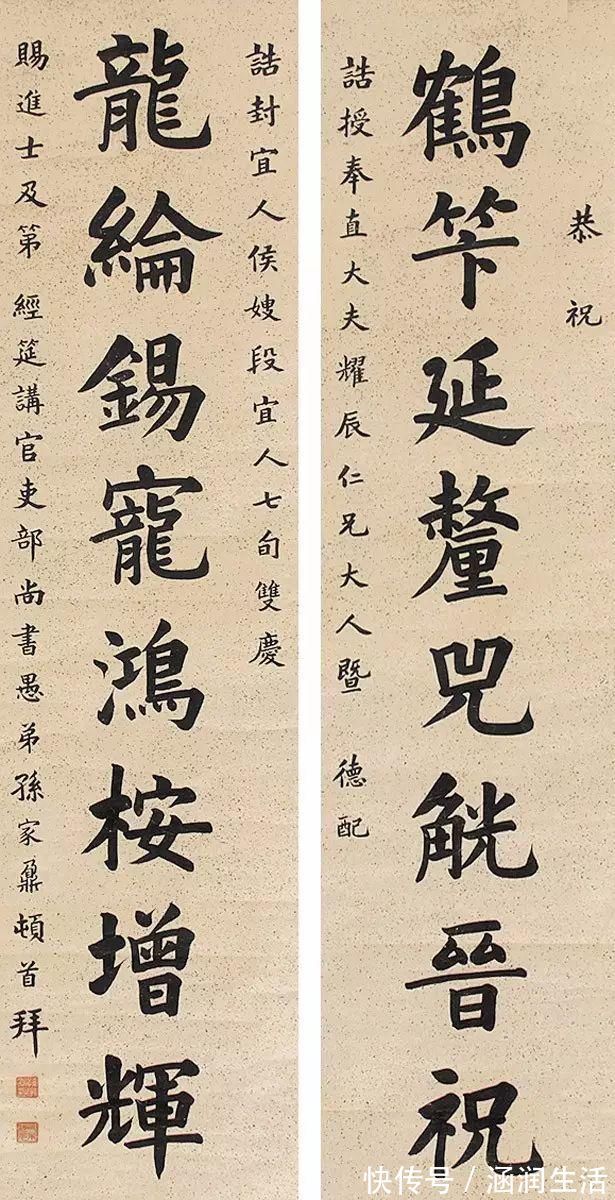 恭祝
鶴笇延釐兕觥晉祝
誥授奉直大夫耀辰仁兄大人暨 德配
誥封宜人侯嫂段宜人七旬雙慶
龍綸錫寵鴻桉增輝
賜進士及第 經筵講官吏部尚書愚弟孫家鼐頓首拜
快传号／涵润生活